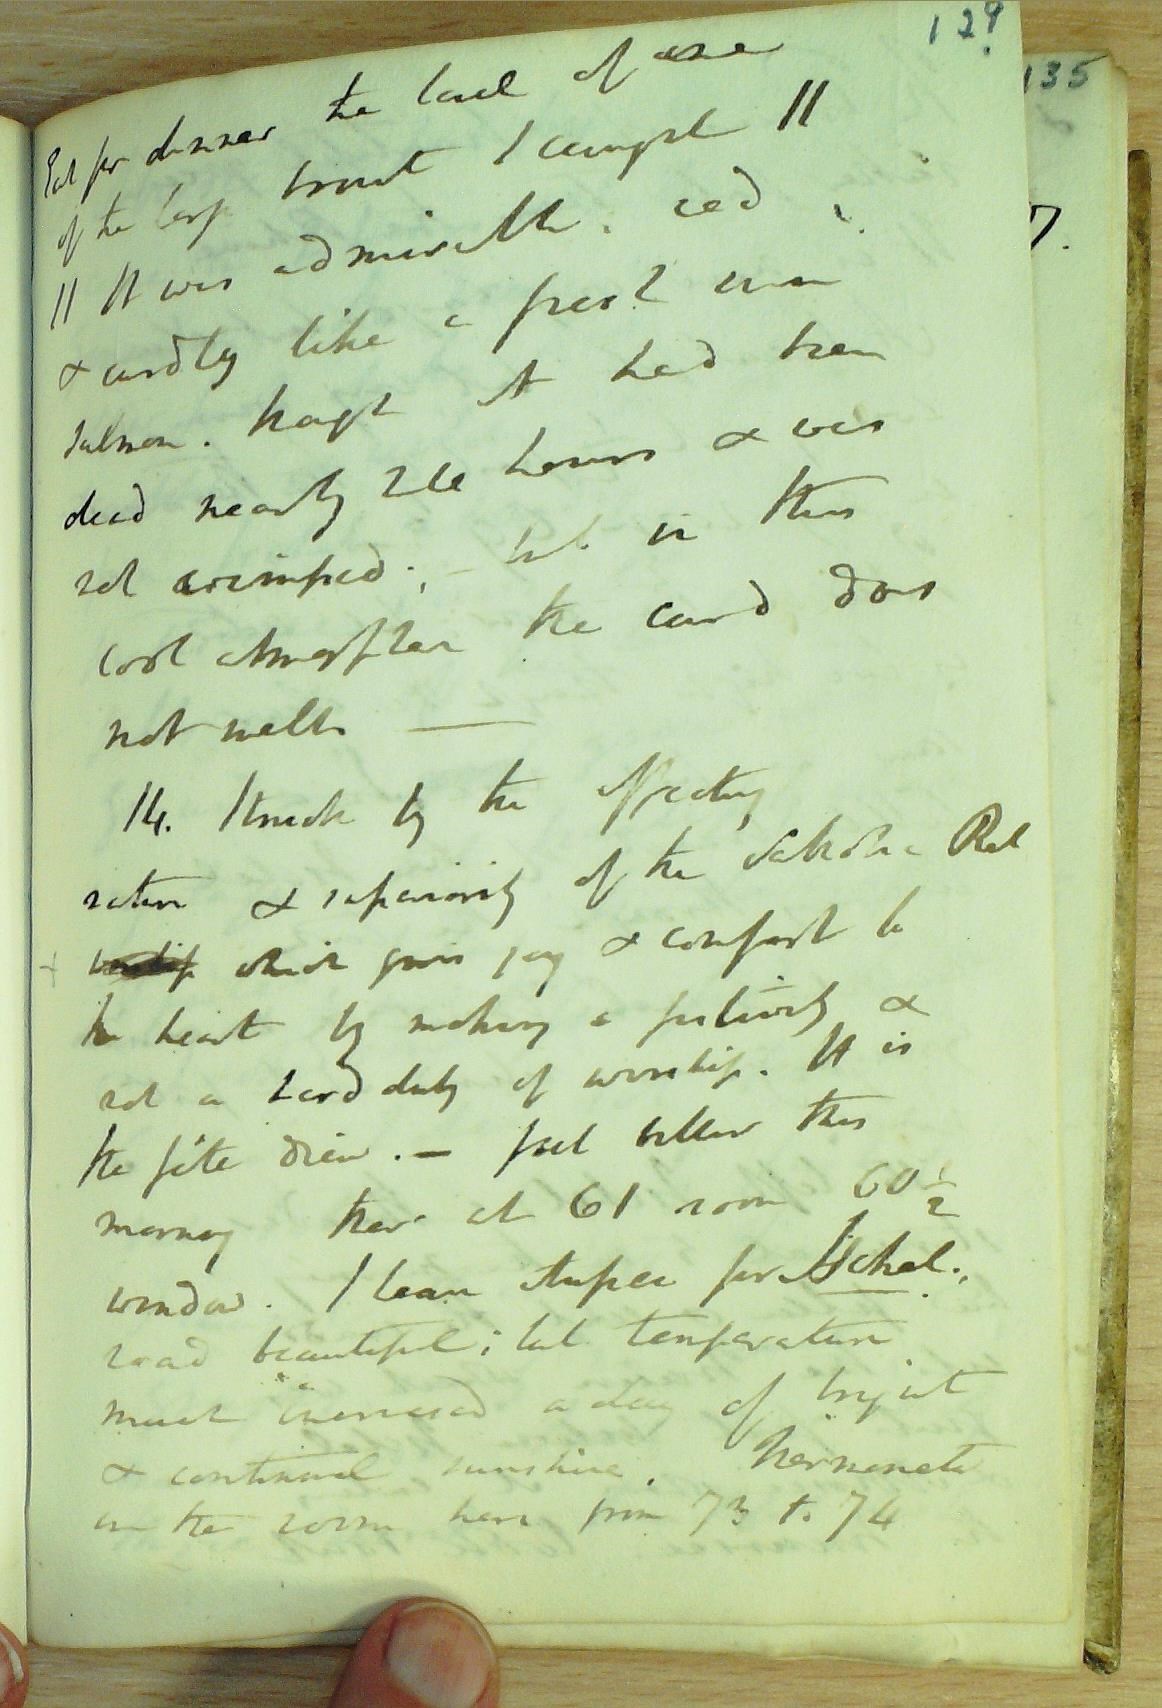 129
135
7.
Eat for dinner the head of one
of the large trout I caught 11
11 It was admirable. red
& curdly like a fresh run
salmon. though it had been
dead nearly 26 hours & was
not crimped; – but in this
cool atmosphere the curd does
not melt —
14. Struck by the affecting
nature & superiority of the Catholic Rel
which gives joy & comfort to
the heart by making a festivity &
not a hard duty of worship. It is
the fête Dieu. – feel better this
morning ther at 61 room 60½
window. I leave for Ischel.
road beautiful; but temperature
much increased a day of bright
& continual sunshine. Thermometer
in the room here from 73 to 74